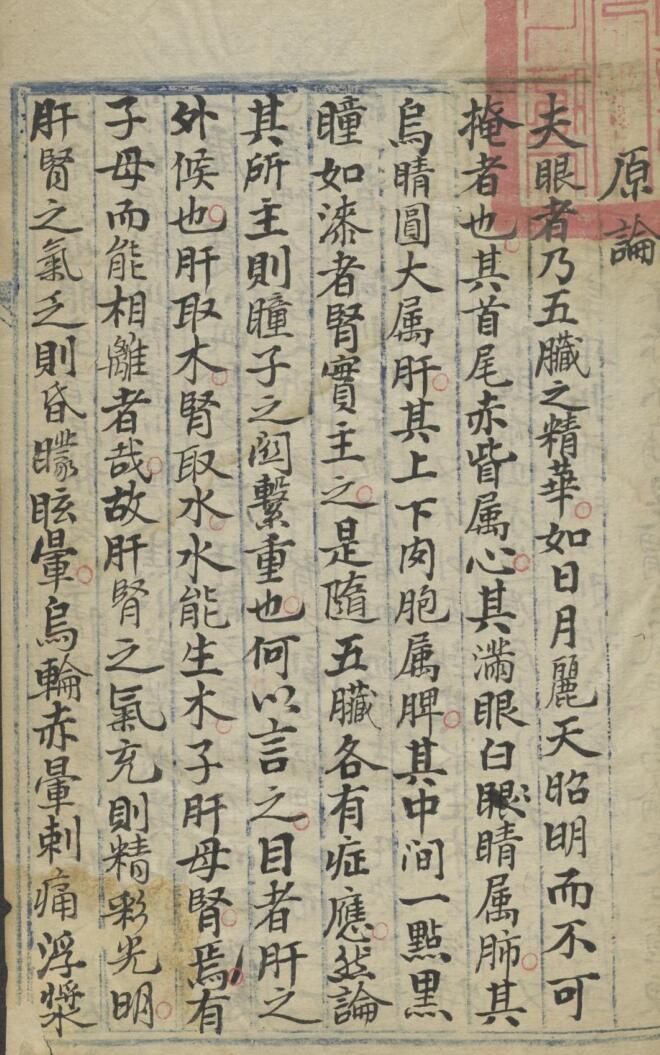 原論
夫眼者乃五臟之精華如日月麗天昭明而不可
掩者也其首尾赤眥属心其滿眼白眼睛属肺其
烏睛圓大属肝其上下肉胞属脾其中间一點黑
瞳如漆者腎實主之是隨五臟各有症應然論
其所主則瞳子之関繫重也何以言之目者肝之
外候也肝取木腎取水水能生木子肝母腎焉有
子母而能相離者哉故肝腎之氣充則精彩光明
肝腎之氣乏則昏矇眩暈烏輪赤暈刺痛浮漿